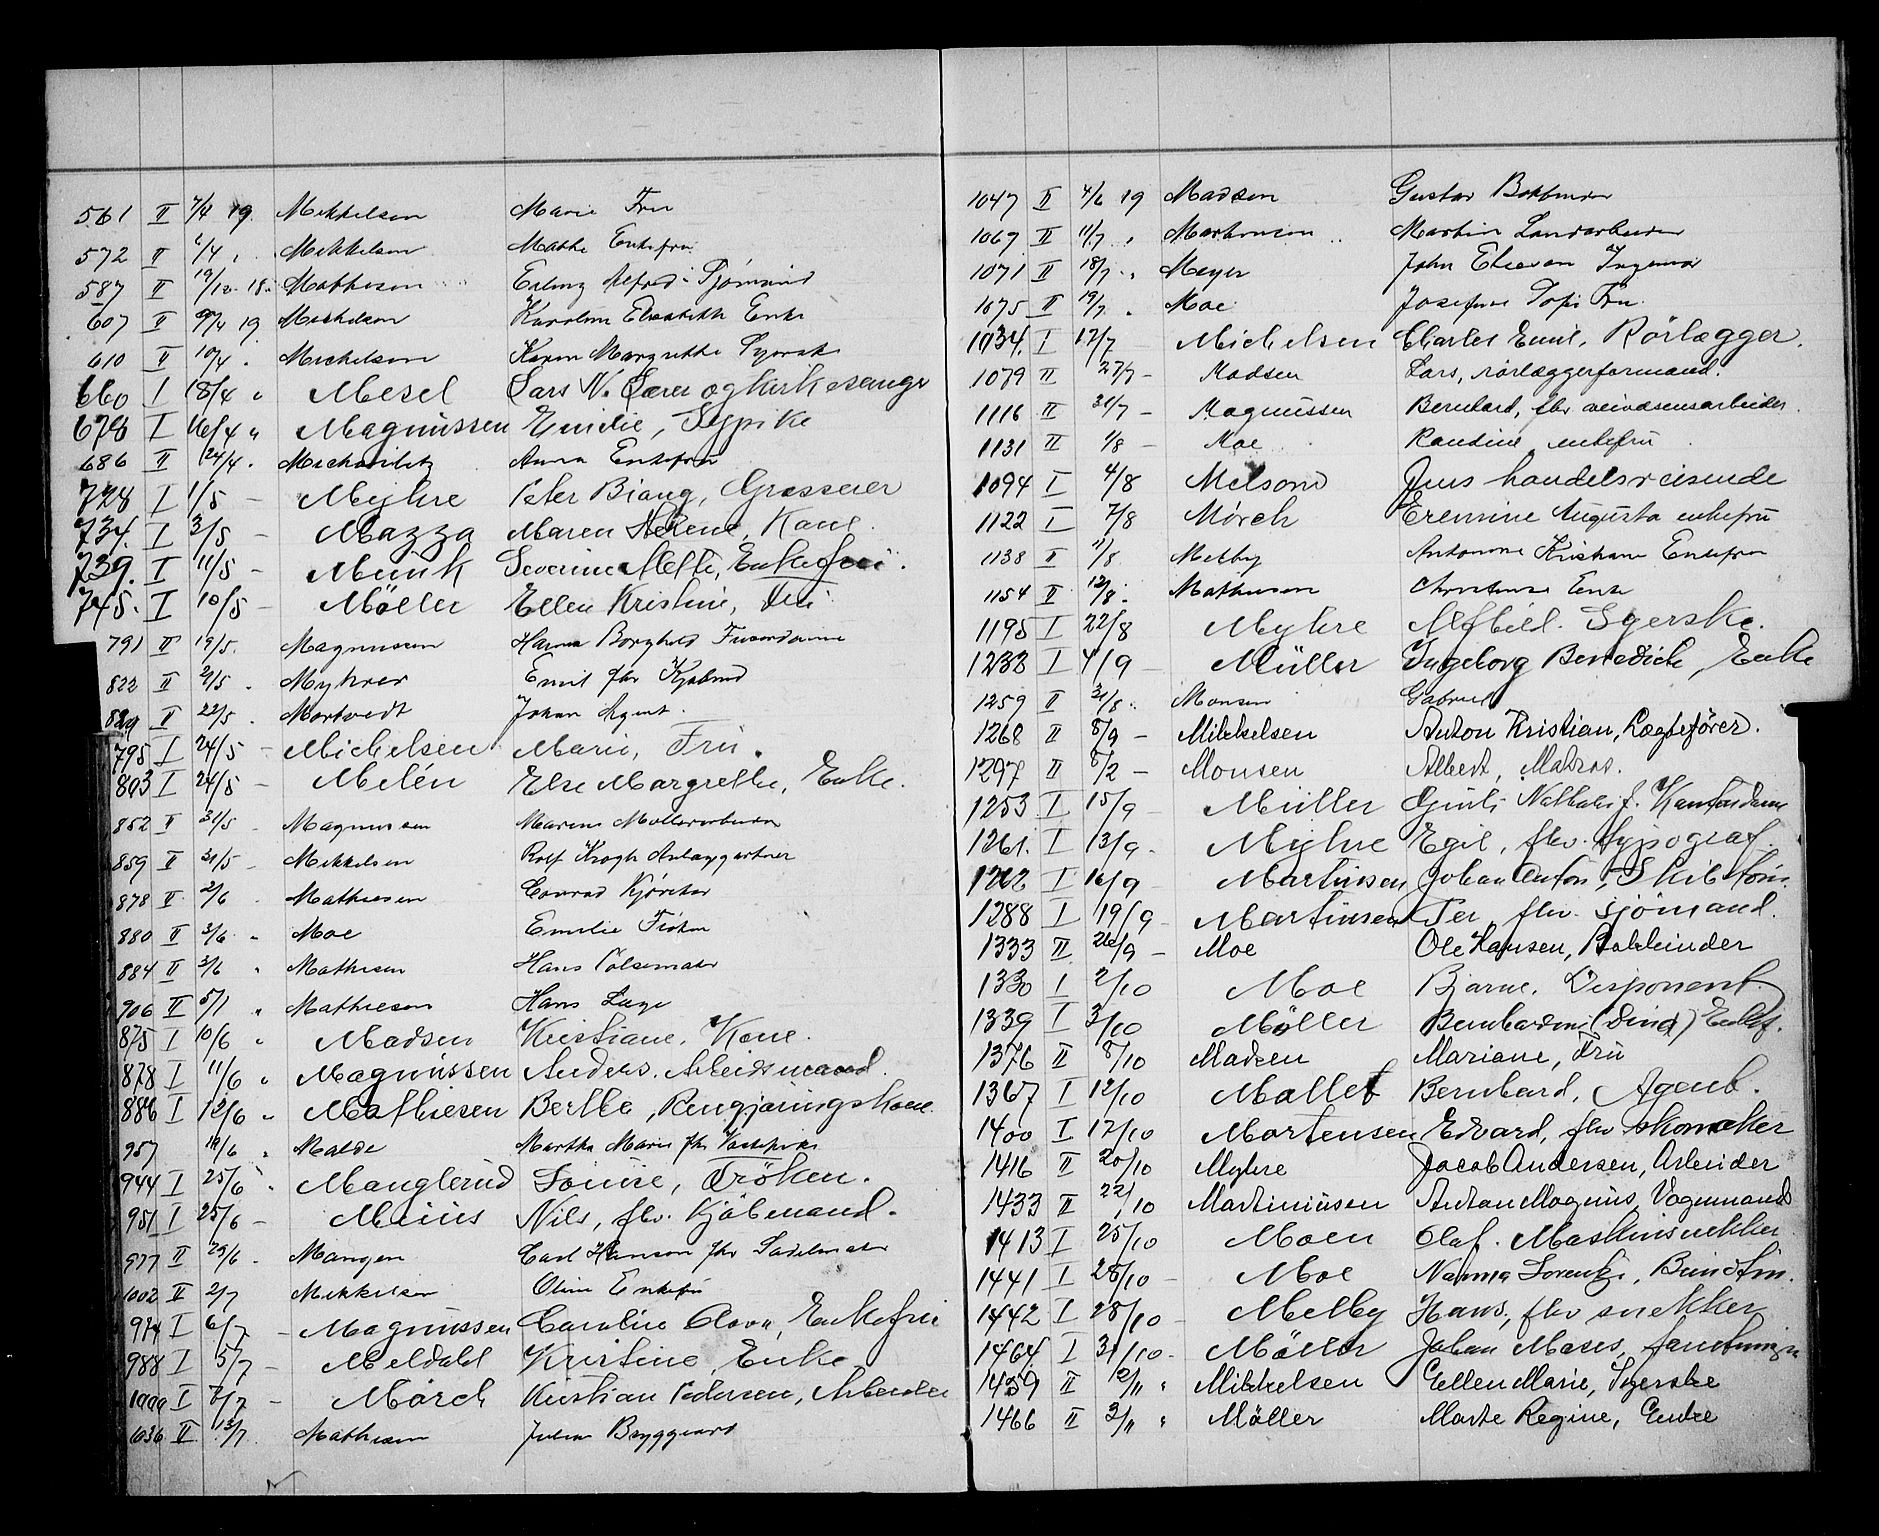 561 II 7/4 19. Mikkelsen Marie Fru
572 II 6/4 " Mikkelsen Mathe Enkefru
587 II 19/12 18. Mathisen Erling Alfred Sjømand
607 II 9/4 19 Michelsen Karoline Elisabeth Enke
610 II 10/4 " Michelsen Karen Margrethe Syerske
660 I 18/4 " Mesel Lars N. Lærer og kirkesanger
678 I 16/4 " Magnussen Emilie, Sypike
686 II 24/4 " Anna Enkefru
728 I 1/5 - Myhre Peter Bjang, Grosserer
734. I 3/5 - Mazza Maren Helene, Kone.
739. I 11/5 - Munk Severine Mette, Enkefru.
745. I 10/5 - Möller Ellen Kristine, Fru
791 II 19/5. Magnussen Hanna Borghild Frisördame
822 II 2/5 " Myhrer Emil fhv Kjøbmd
829 II 22/5 " Mortvedt Johan Agent.
795 I 24/5 - Michelsen Marie, Fru.
803 I 24/5 - Melén Else Margrethe, Enke.
852 II 31/5 - Magnussen Marius
859 II 31/5 - Mikkelsen Rolf Krogh Anlæggartner
878 II 2/6 " Mathiesen Conrad Kjöretør
880 II 3/6 " Moe Emilie Frøken
884 II 3/6 " Mathisen Hans Pølsemaker
906 II 5/1 " Mathiesen Hans
875 I 10/6 " Madsen Kristiane, Kone.
878 I 11/6 " Magnussen Anders, Arbeidsmand.
886 I 12/6 " Mathiesen Berthe, Rengjøringskone.
957 19/6 " Malde Martha Marie fhv Vaskepike
944 I 25/6 " Manglerud Louise, Fröken.
951 I 25/6 - Meius Nils, flv. Kjöbmand.
977 II 29/6 " Mangen Carl Hanson fhv Sadelmaker
1002 II 2/7 Mikkelsen Oline Enkefru
974 I 6/7 - Magnussen Caroline Olava, Enkefru
988 I 5/7 - Meldahl Kristine, Enke
1000 I 8/7 - Mörch Kristian Pedersen, Arbeider
1036 II 13/7 Mathisen Julius Bryggeriarb
1047 II 4/6 19 Madsen Gustav Bokbinder
1067 II 11/7 " Martinsen Martin Landarbeider
1071 II 18/7 " Meyer John Ingeniør
1075 II 19/7 " Moe Josefine Sofie Fru
1034. I 17/7 Michelsen Charles Emil, Rörlægger.
1079 II 27/7 - Madsen Lars, rörlæggerformand.
1116 II 31/7 - Magnussen Bernhard, flv veivæsensarbeider.
1131 II 1/8 - Moe Randine, enkefru
1094 I 4/8 Melsom Jens handelsreisende
1122 I 7/8 Mörch Eremine Augusta enkefru
1138 II 11/8 Melby Antonine Kristiane Enkefru
1154 II 12/8 " Mathiesen Christense Enke
1195 I 22/8 Myhre Alfhild. Syerske.
1232 I 4/9 - Müller Ingeborg Benedicte, Enke
1259 II 31/8 " Monsen Gabriel
1268 II 8/9 - Mikkelsen Anton Kristian, Lægtefører.
1297 II 8/2 - Monsen Albert, Matros.
1253 I 15/9 - Müller Nathalie f. Kontordame
1261. I 13/9 - Myhre Egil, flv. typograf.
1262 I 16/9 - Martinsen Johan Anton, Skibstöm.
1288 I 19/9 - Martinsen Per, flv. sjömand.
1333 II 26/9 - Moe Ole Hansen, Bokbinder
1330 I 2/10 Moe Bjarne. Disponent.
1339 I 3/10 Möller Bernhardine (Dina) Enkef.
1376 II 8/10 Madsen Mariane, Fru
1367 I 12/10 Mallet Bernhard, Agent.
1400 I 17/10 Mortensen Edvard, flv skomaker
1416 II 20/10 Myhre Jacob Andersen, Arbeider
1433 II 22/10 Martiniusen Anton Magnus, Vognmand
1413 I 25/10 Moen Olaf. Maskinsnekker
1441 I 28/10 - Moe Nanna Lorentze, Bundtm.
1442 I 28/10 - Melby Hans, flv snekker
1464. I 31/10 - Möller Johan Moses,
1459 II 2/11 " Mikkelsen Ellen Marie, Syerske
1466 II 3/11 " Möller Marte Regine, Enke